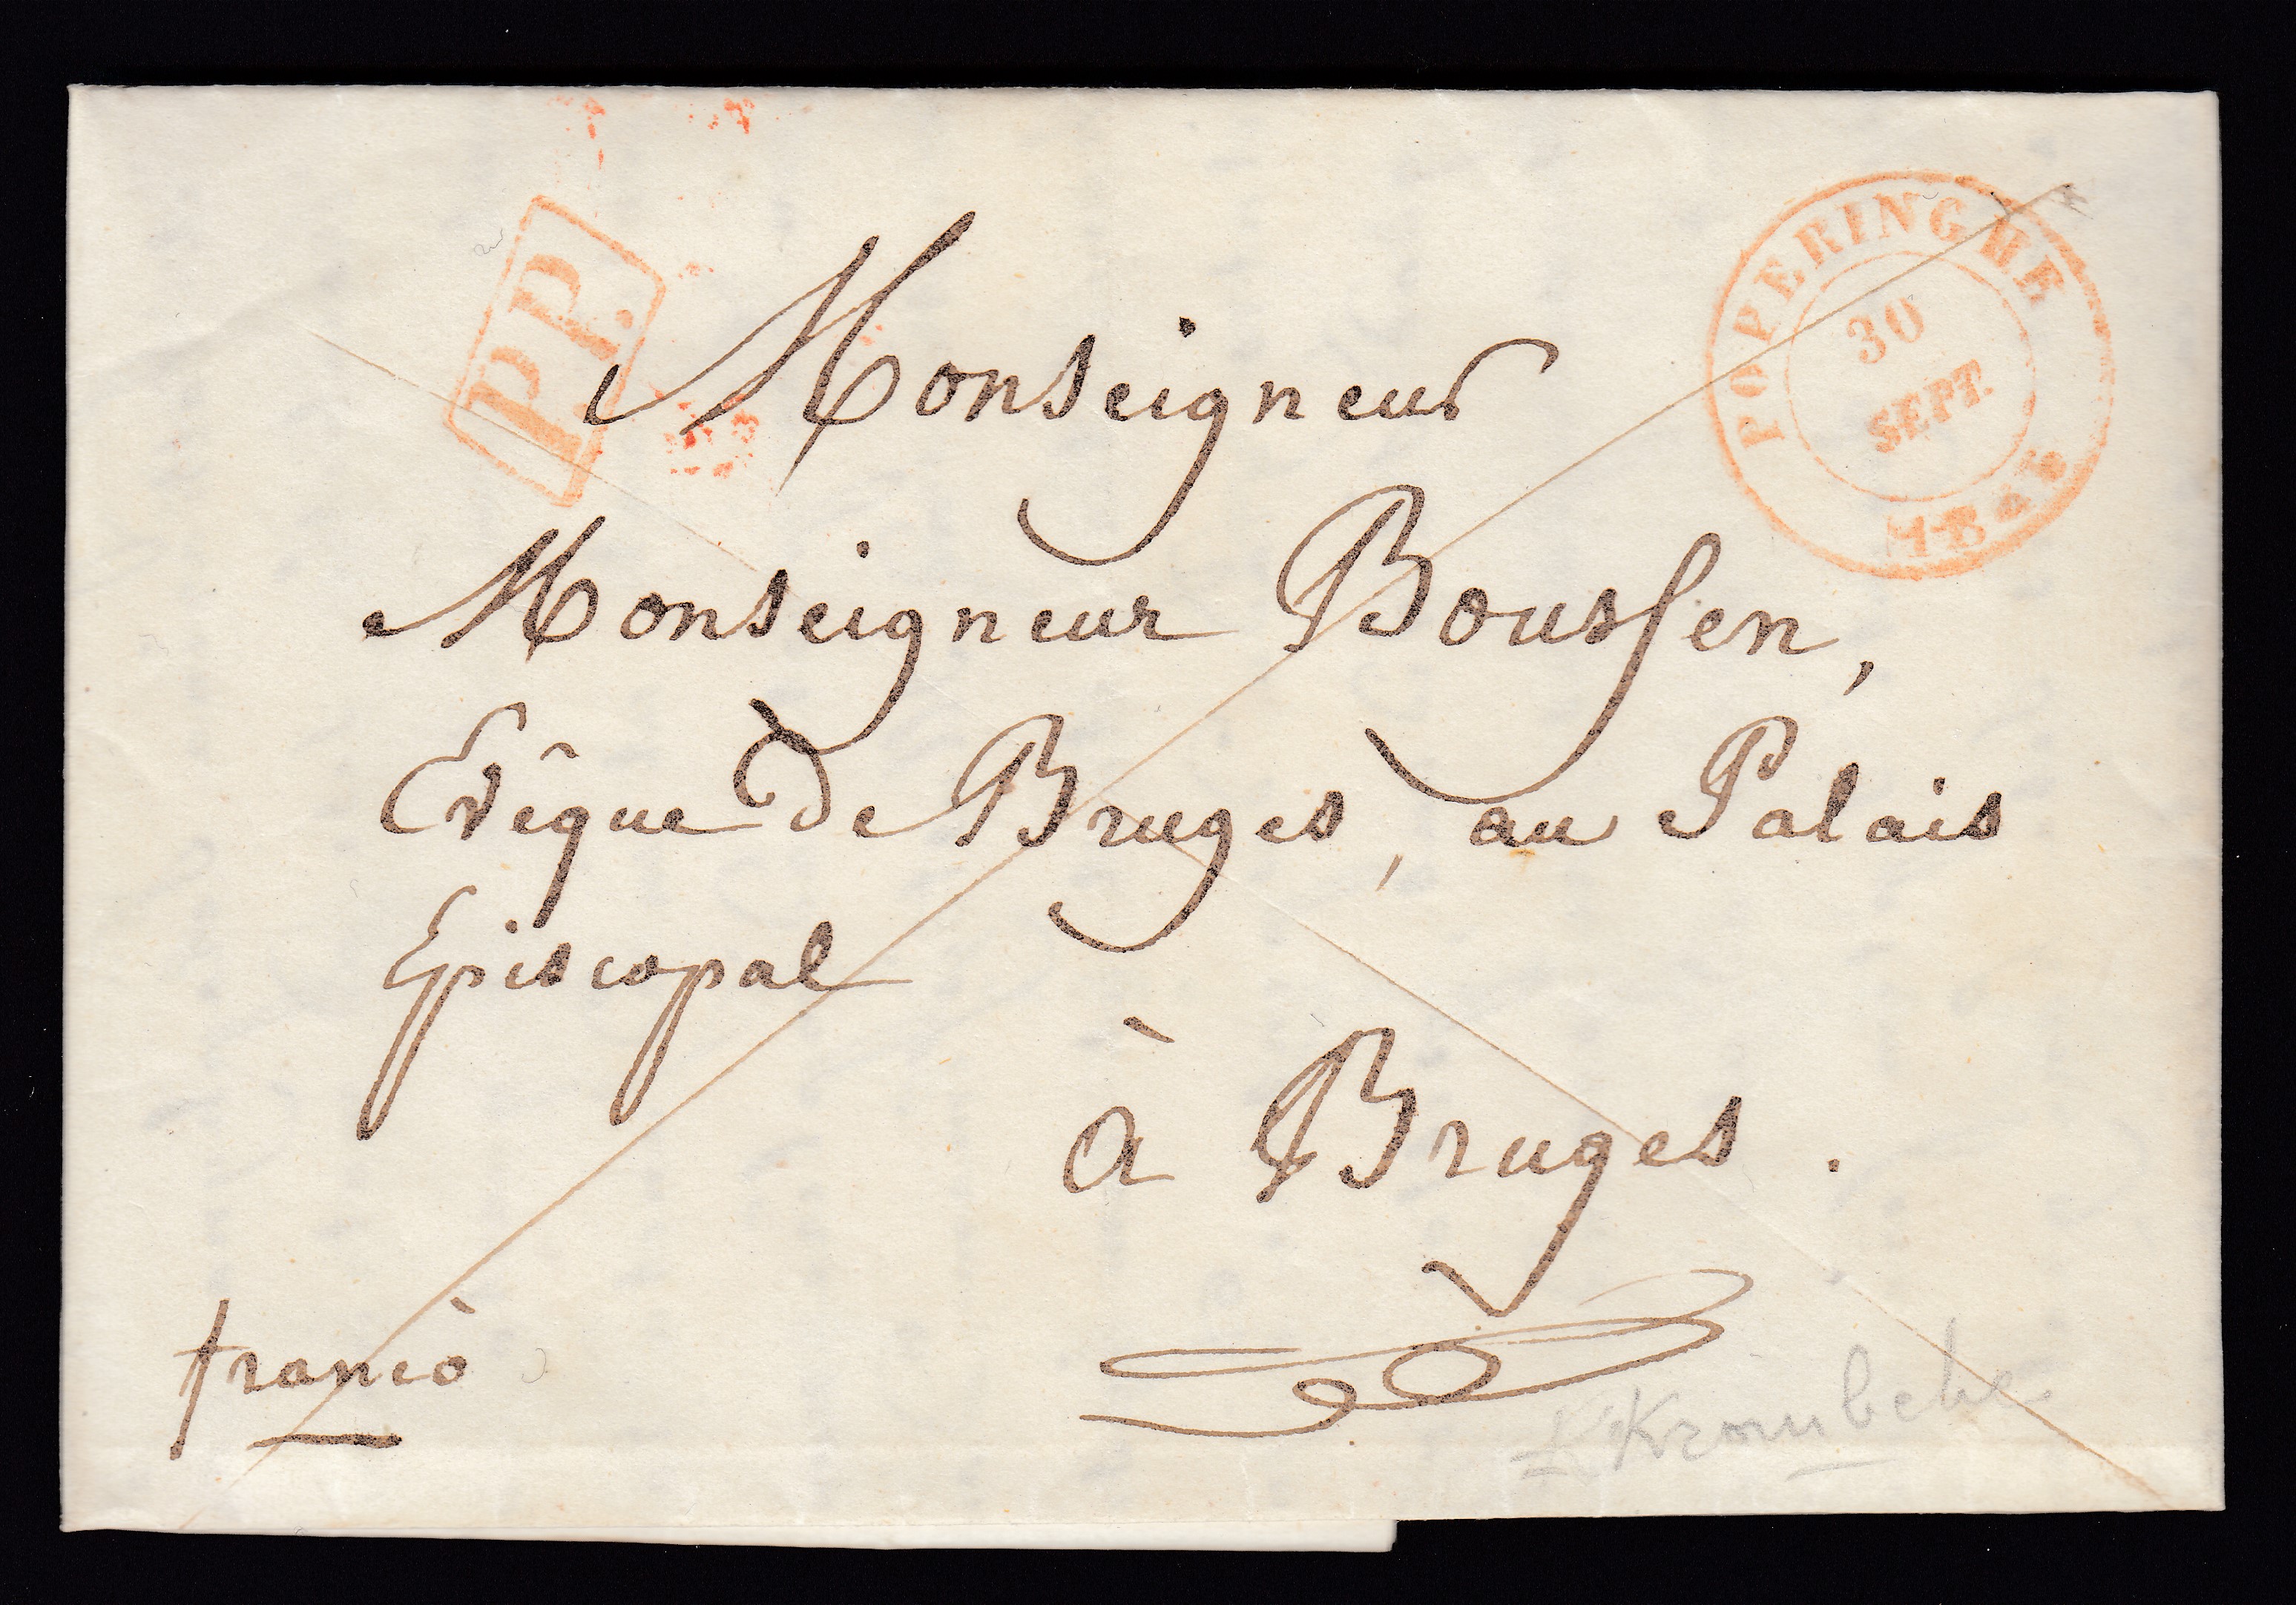 P.P.
POPERINGHE
30
SEPT.
Monseigneur
Monseigneur Boussen,
Evêque de Bruges, au Palais
Episcopal
à Bruges.
franco
Krombeke